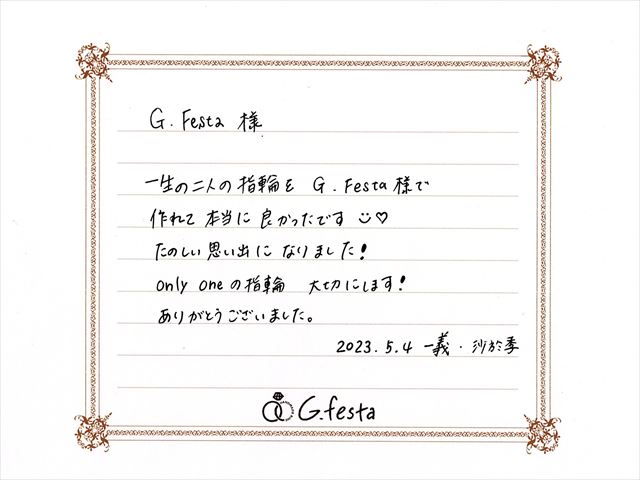 G. Festa 様
一生の二人の指輪を G. Festa様で
作れて 本当に 良かったです ☺♡
たのしい 思い出に なりました!
only oneの指輪 大切にします!
ありがとうございました。
2023.5.4 一義・沙於季
G.festa